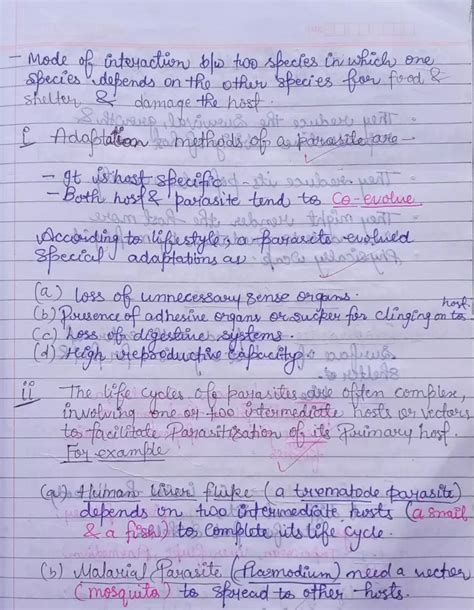 - Mode of interaction b/w two species in which one
species depends on the other species for food &
shelter & damage the host.
i Adaptation methods of a parasite are -
- It is host specific
- Both host & parasite tend to Co-evolve
According to lifestyles a parasite evolved
special adaptations as
(a) loss of unnecessary sense organs.
(b) Presence of adhesive organs or sucker for clinging on to host.
(c) Loss of digestive systems.
(d) High reproductive capacity
ii The life cycles of parasites are often complex,
involving one or two intermediate hosts or vectors
to facilitate Parasitisation of its Primary host.
For example
(a) Human liver fluke (a trematode parasite)
depends on two intermediate hosts (a snail
& a fish) to complete its life cycle.
(b) Malarial Parasite (Plasmodium) need a vector
(mosquito) to spread to other hosts.